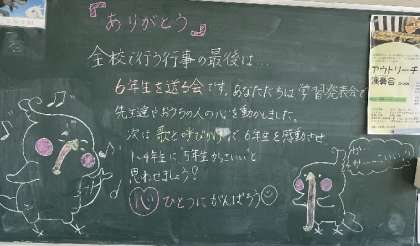 『ありがとう』
全校で行う行事の最後は…
6年生を送る会です。あなたたちは学習発表会で
先生達やおうちの人の心を動かしました。
次は歌と呼びかけで6年生を感動させ
1~4年生に5年生かっこいいと
思わせましょう?
心ひとつにがんばろう
アウトリーチ
演奏会